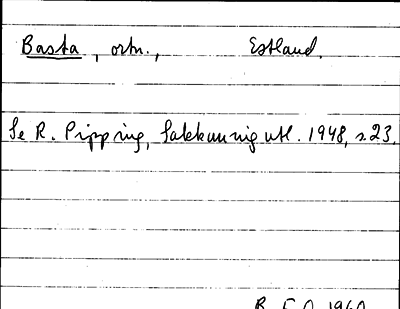 Basta, ortn., Estland.
Se R. Pipping, Sakkunnigutl. 1948, s. 23.